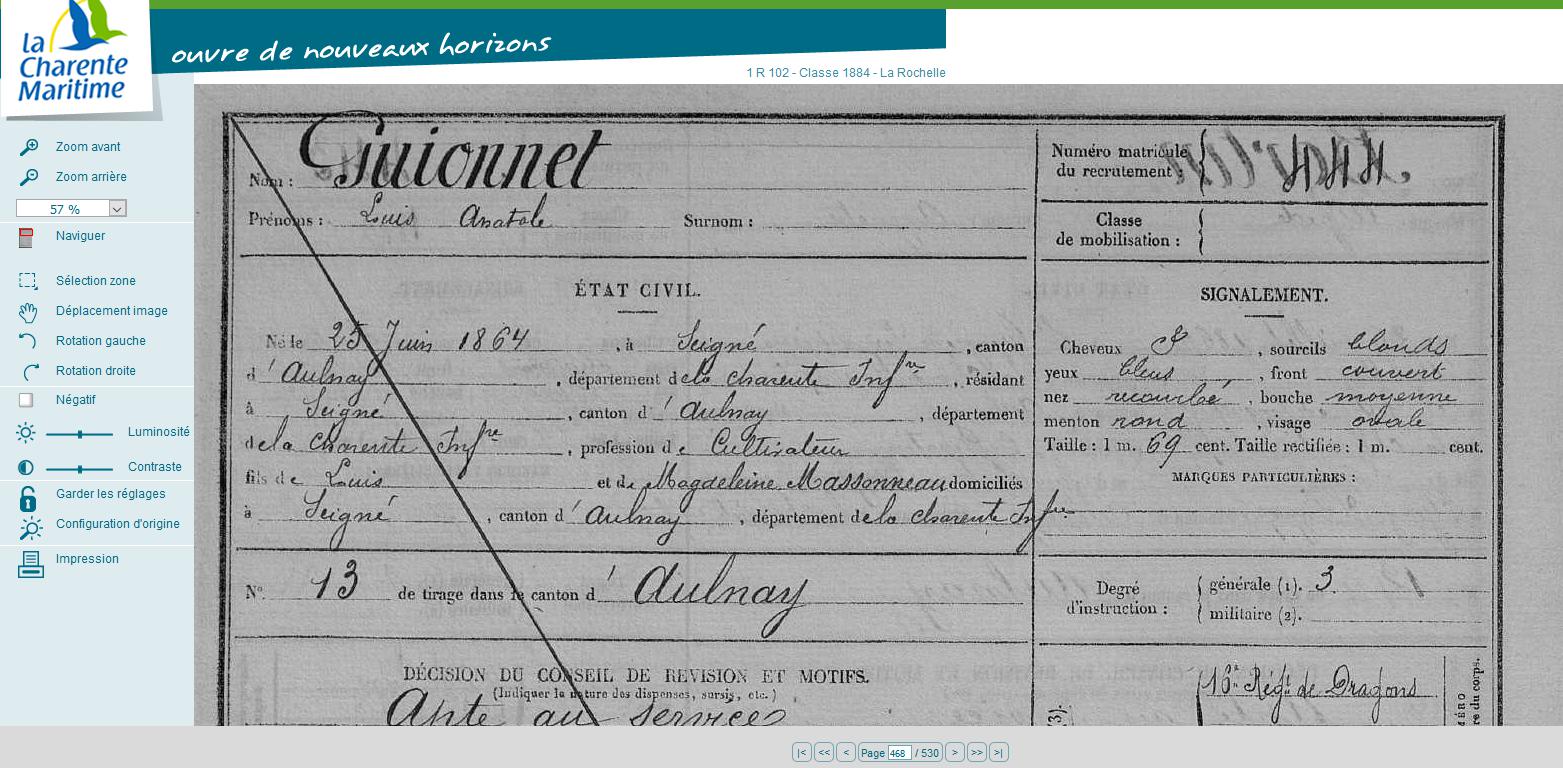 la
Charente
Maritime
ouvre de nouveaux horizons
1 R 102 - Classe 1884 - La Rochelle
Zoom avant
Zoom arrière
57 %
Naviguer
Sélection zone
Déplacement image
Rotation gauche
Rotation droite
Négatif
Luminosité
Contraste
Garder les réglages
Configuration d'origine
Impression
Nom : Guionnet
Prénoms : Luis Anatole Surnom :
Numéro matricule
du recrutement :
Classe
de mobilisation :
ÉTAT CIVIL.
Né le 25 Juin 1864, à Seigné, canton
d'Aulnay, département de la charente Infre, résidant
à Seigné, canton d'Aulnay, département
de la charente Infre, profession de Cultivateur
fils de Luis et de Magdeleine Massonneau domiciliés
à Seigné, canton d'Aulnay, département de la charente Infre
N° 13 de tirage dans le canton d'Aulnay
DÉCISION DU CONSEIL DE REVISION ET MOTIFS.
(Indiquer la nature des dispenses, sursis, etc.)
Apte au service
SIGNALEMENT.
Cheveux, sourcils blonds
yeux bleus, front couvert
nez recourbé, bouche moyenne
menton rond, visage ovale
Taille : 1 m. 69 cent. Taille rectifiée : 1 m. cent.
MARQUES PARTICULIÈRES :
Degré
d'instruction :
générale (1). 3
militaire (2).
Régt de Dragons
(3).
Page 468 / 530